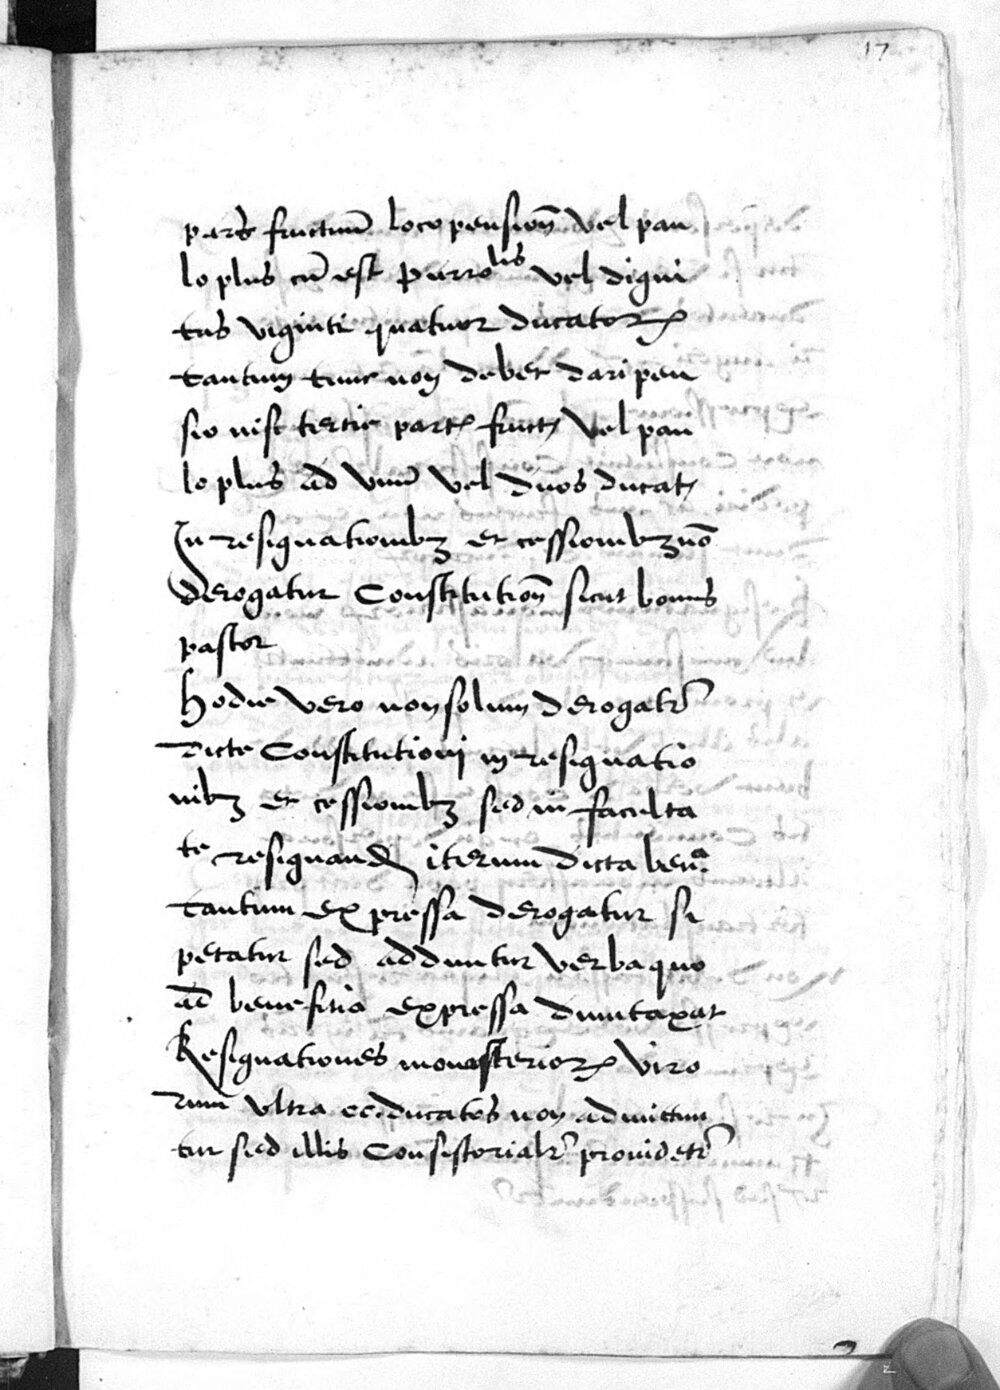 17
parte fructuū loco pensioñ vel pau
lo plus cū est parro lis vel digni
tas viginti quatuor ducatoꝝ
tantum tunc non debet dari pen
sio nisi tertie part fruct vel pau
lo plus ad vnū vel duos ducat
In resignationibꝫ et cessionibꝫ nō
derogatur Constitutioñ sicut bonus
pastor
Hodie vero non solum derogatr
dicte Constitutioni in resignatio
nibꝫ et cessionibꝫ sed in faculta
te resignand iterum dicta benᵃ
tantum expressa derogatur si
petatur sed adduntur verba quo
ad benefitia expressa dumtaxat
Resignationes monasterioꝝ viro
rum vltra cc. ducatos non admittun
tur sed illis Consistorialr prouidetr